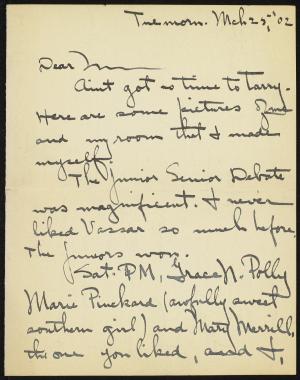 Tue morn. Mch 25, '02
Dear M
Aint got no time to tarry.
Here are some pictures of me
and my room that I made
myself.
The Junior Senior Debate
was magnificent. I never
liked Vassar so much before,
The Juniors won.
Sat. P.M, Grace N. Polly
Marie Pinckard (awfully sweet
southern girl) and Mary Merrill,
the one you liked, and I,